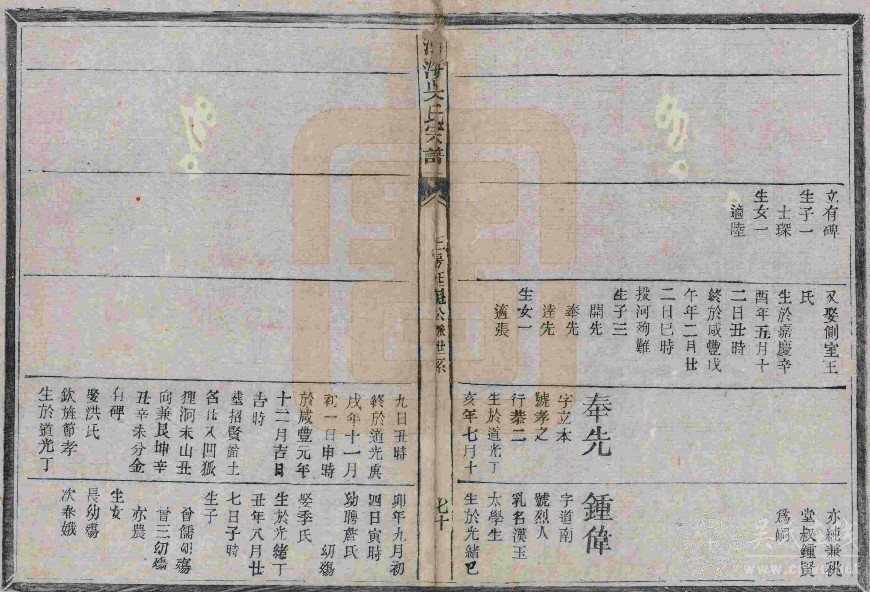 立有碑
生子一
士琛
生女一
適陸
又娶側室王
氏
生於嘉慶辛
酉年五月十
二日丑時
終於咸豐戊
午年二月廿
二日巳時
投河殉難
生子三
開先
奉先
逵先
生女一
適張
奉先
字立本
號孝之
行恭二
生於道光丁
亥年七月十
亦純兼祧
堂叔鍾賢
為嗣
鍾偉
字道南
號烈人
乳名漢玉
太學生
生於光緒己
海吳氏宗譜
公派世系
七十
九日丑時
終於道光庚
戌年十一月
初一日申時
於咸豐元年
十二月吉日
吉時
塟招賢
名
狸洞未山丑
向兼艮坤辛
丑辛未分金
有碑
欽旌節孝
娶洪氏
生於道光丁
卯年九月初
四日寅時
幼聘詹氏
幼殤
娶季氏
生於光緒丁
丑年八月廿
七日子時
生子
曾儒幼殤
曾三幼殤
亦農
生女
長幼殤
次春娥